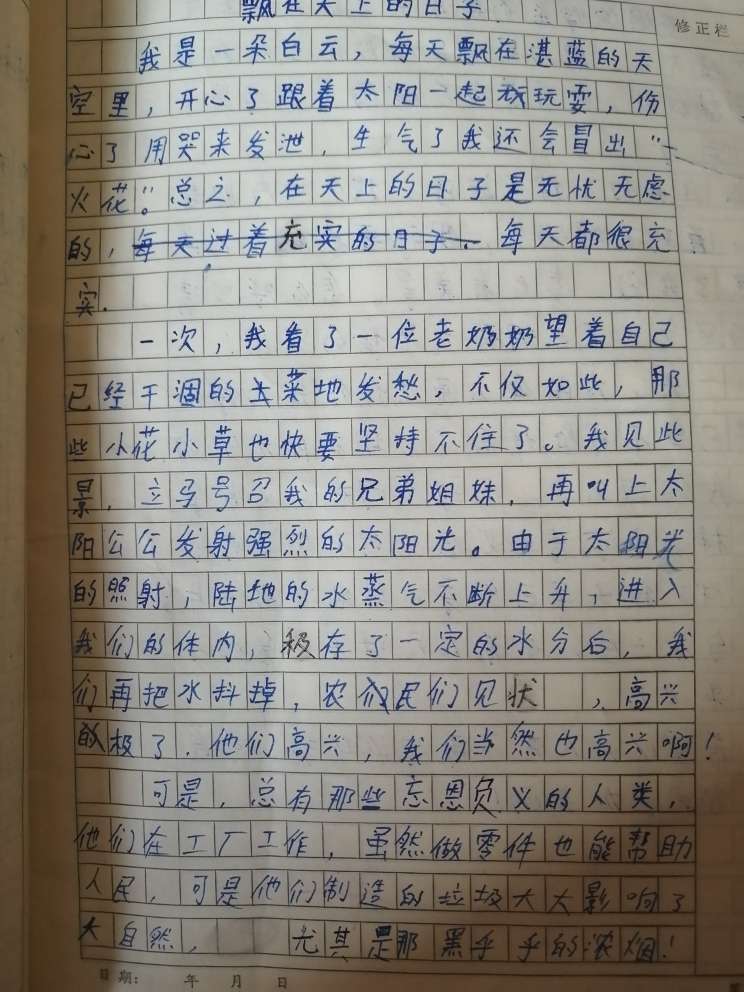 飘在天上的日子
修正栏
我是一朵白云，每天飘在湛蓝的天
空里，开心了跟着太阳一起玩玩耍，伤
心了用哭来发泄，生气了我还会冒出“
火花”。总之，在天上的日子是无忧无虑
的，每天过着充实的日子．每天都很充
实．
一次，我看了一位老奶奶望着自己
已经干涸的土菜地发愁，不仅如此，那
些小花小草也快要坚持不住了。我见此
景，立马号召我的兄弟姐妹，再叫上太
阳公公发射强烈的太阳光。由于太阳光
的照射，陆地的水蒸气不断上升，进入
我们的体内，积存了一定的水分后，我
们再把水抖掉，农民们见状，高兴
极了．他们高兴，我们当然也高兴啊！
可是，总有那些忘恩负义的人类，
他们在工厂工作，虽然做零件也能帮助
人民，可是他们制造的垃圾大大影响了
大自然，尤其是那黑乎乎的浓烟！
日期：　年　月　日